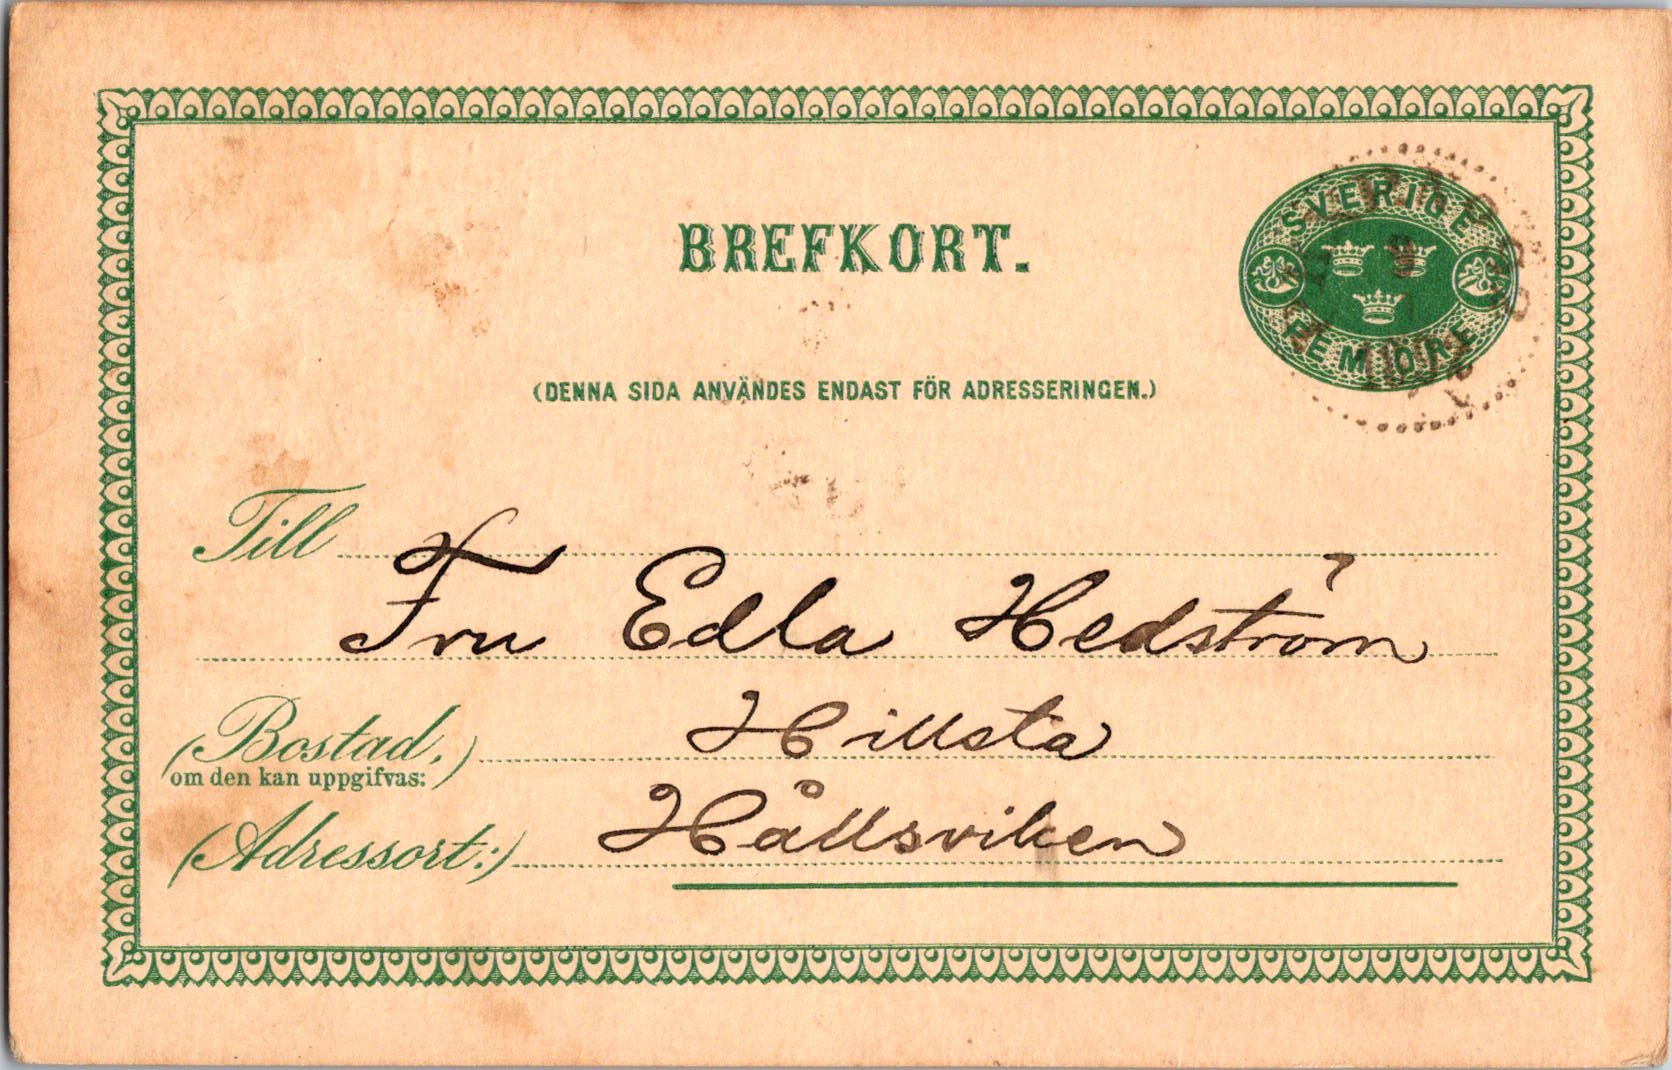 BREFKORT.
SVERIGE
FEM ÖRE
(DENNA SIDA ANVÄNDES ENDAST FÖR ADRESSERINGEN.)
Till
Fru Edla Hedström
(Bostad,)
om den kan uppgifvas:
Hillsta
(Adressort:)
Hållsviken